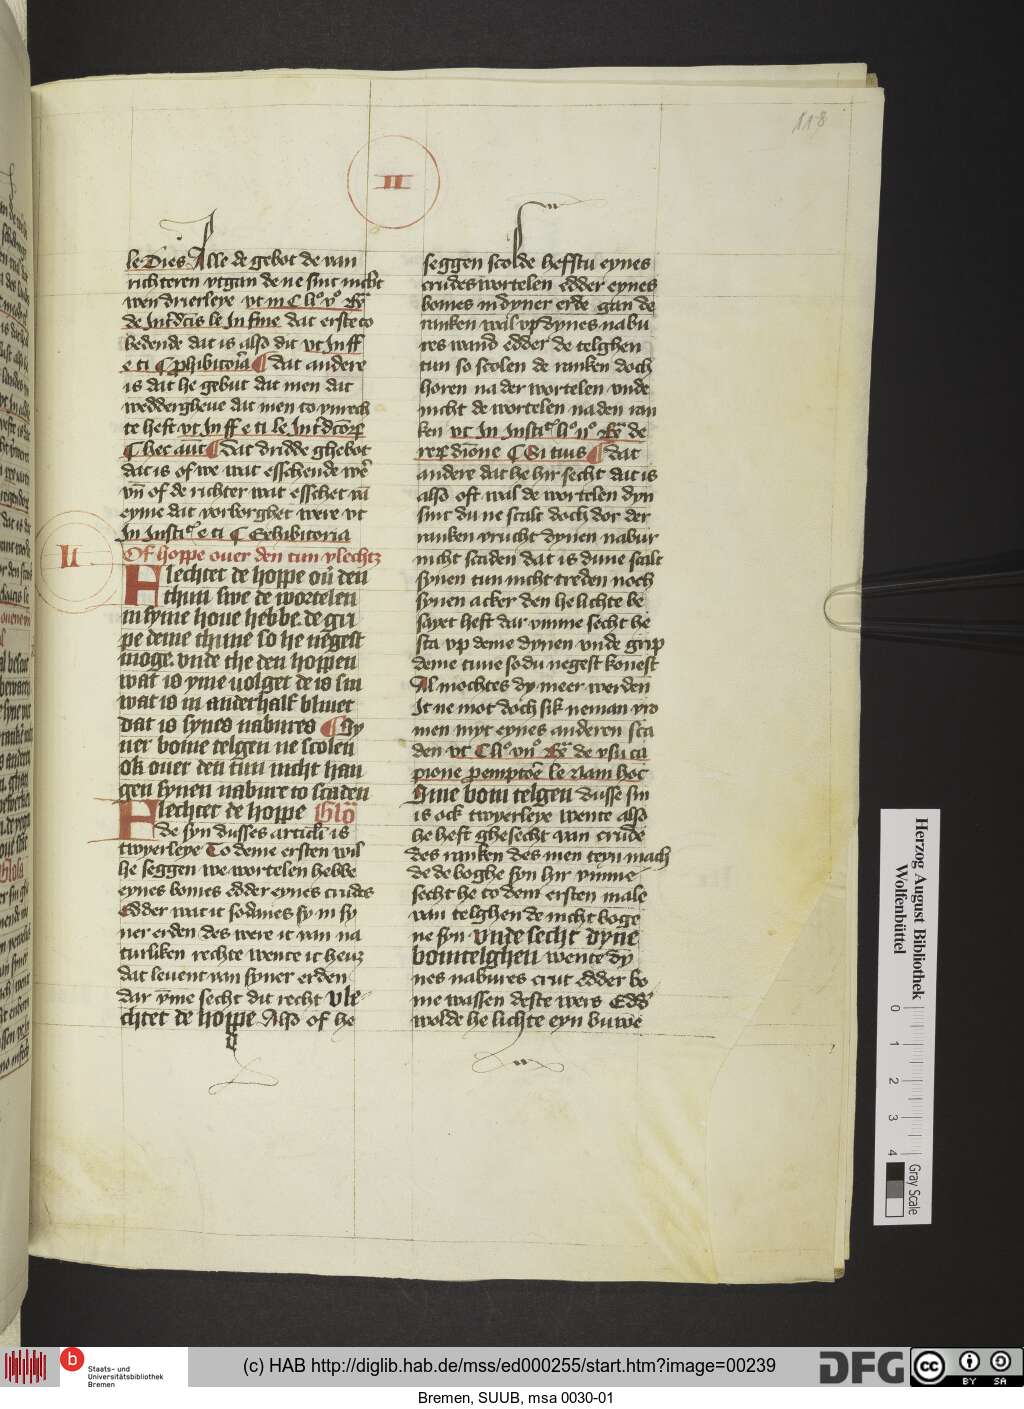 118
II
le Dies Alle de gebot de van
richteren vtgan de ne sint nicht
wen drierleye vt in C li° v° Ex
de Int'dcis le In fine dat erste to
bedende dat is also dit vt In ff
e ti C phibitoria dat andere
is dat he gebut dat men dat
weddergheue dat men to vnrech
te heft vt In ff e ti le Int'dcorꝝ
C hec aut dat dridde ghebot
dat is of we wat esschende we
vn of de richter wat esschet va
eyme dat vorborghet were vt
In Insti e ti C Exhibitoria
Of hoppe ouer den tun vlechtz
II
Flechtet de hoppe ou den
thun swe de wortelen
in syme houe hebbe de gri
pe deme thune so he negest
moge vnde the den hoppen
wat is yme volget de is sin
wat is in anderhalf bliuet
dat is synes nabures Sy
ner bome telgen ne scolen
ok ouer den tun nicht han
gen synen nabure to scaden
Flechtet de hoppe Glo
de syn dusses articuli is
twyerleye To deme ersten wil
he seggen we wortelen hebbe
eynes bomes edder eynes crudes
Edder wat it sodanes sy in sy
ner erden des were it van na
turliken rechte wente it heuz
dat leuent van syner erden
dar yme secht dit recht vle
chtet de hoppe Also of he
seggen scolde hefstu eynes
crudes wortelen edder eynes
bomes in dyner erde gan de
ranken wal vp dynes nabu
res wand edder de telghen
tun so scolen de ranken doch
horen na der wortelen vnde
nicht de wortelen na den ran
ken vt In Insti li° ij° Ex de
reꝝ dione C Si tuis dat
andere dat he hir secht dat is
also oft wal de wortelen dyn
sint du ne scalt doch dor der
ranken vrucht dynen nabur
nicht scaden dat is dune scalt
synen tun nicht treden noch
synen acker den he lichte be
sayet heft dar vmme secht he
sta vp deme dynen vnde grip
deme tune so du negest konest
Al mochtes dy meer werden
It ne mot doch sik neman vro
men myt eynes anderen sca
den vt C li° vii° Ex de vsu ca
pione pemptoe le Nam hoc
Sine bom telgen dusse sin
is ock twyerleye wente also
he heft ghesecht van crude
des ranken des men teyn mach
de de boghe syn hir vmme
secht he to dem ersten male
van telghen de nicht boge
ne syn vnde secht dyne
bomtelghen wente dy
nes nabures crut edder bo
me wassen deste wers Edd
wolde he lichte eyn buwe
Herzog August Bibliothek
Wolfenbüttel
0 1 2 3 4
Gray Scale
b
Staats- und
Universitätsbibliothek
Bremen
(c) HAB http://diglib.hab.de/mss/ed000255/start.htm?image=00239
DFG
cc BY SA
Bremen, SUUB, msa 0030-01